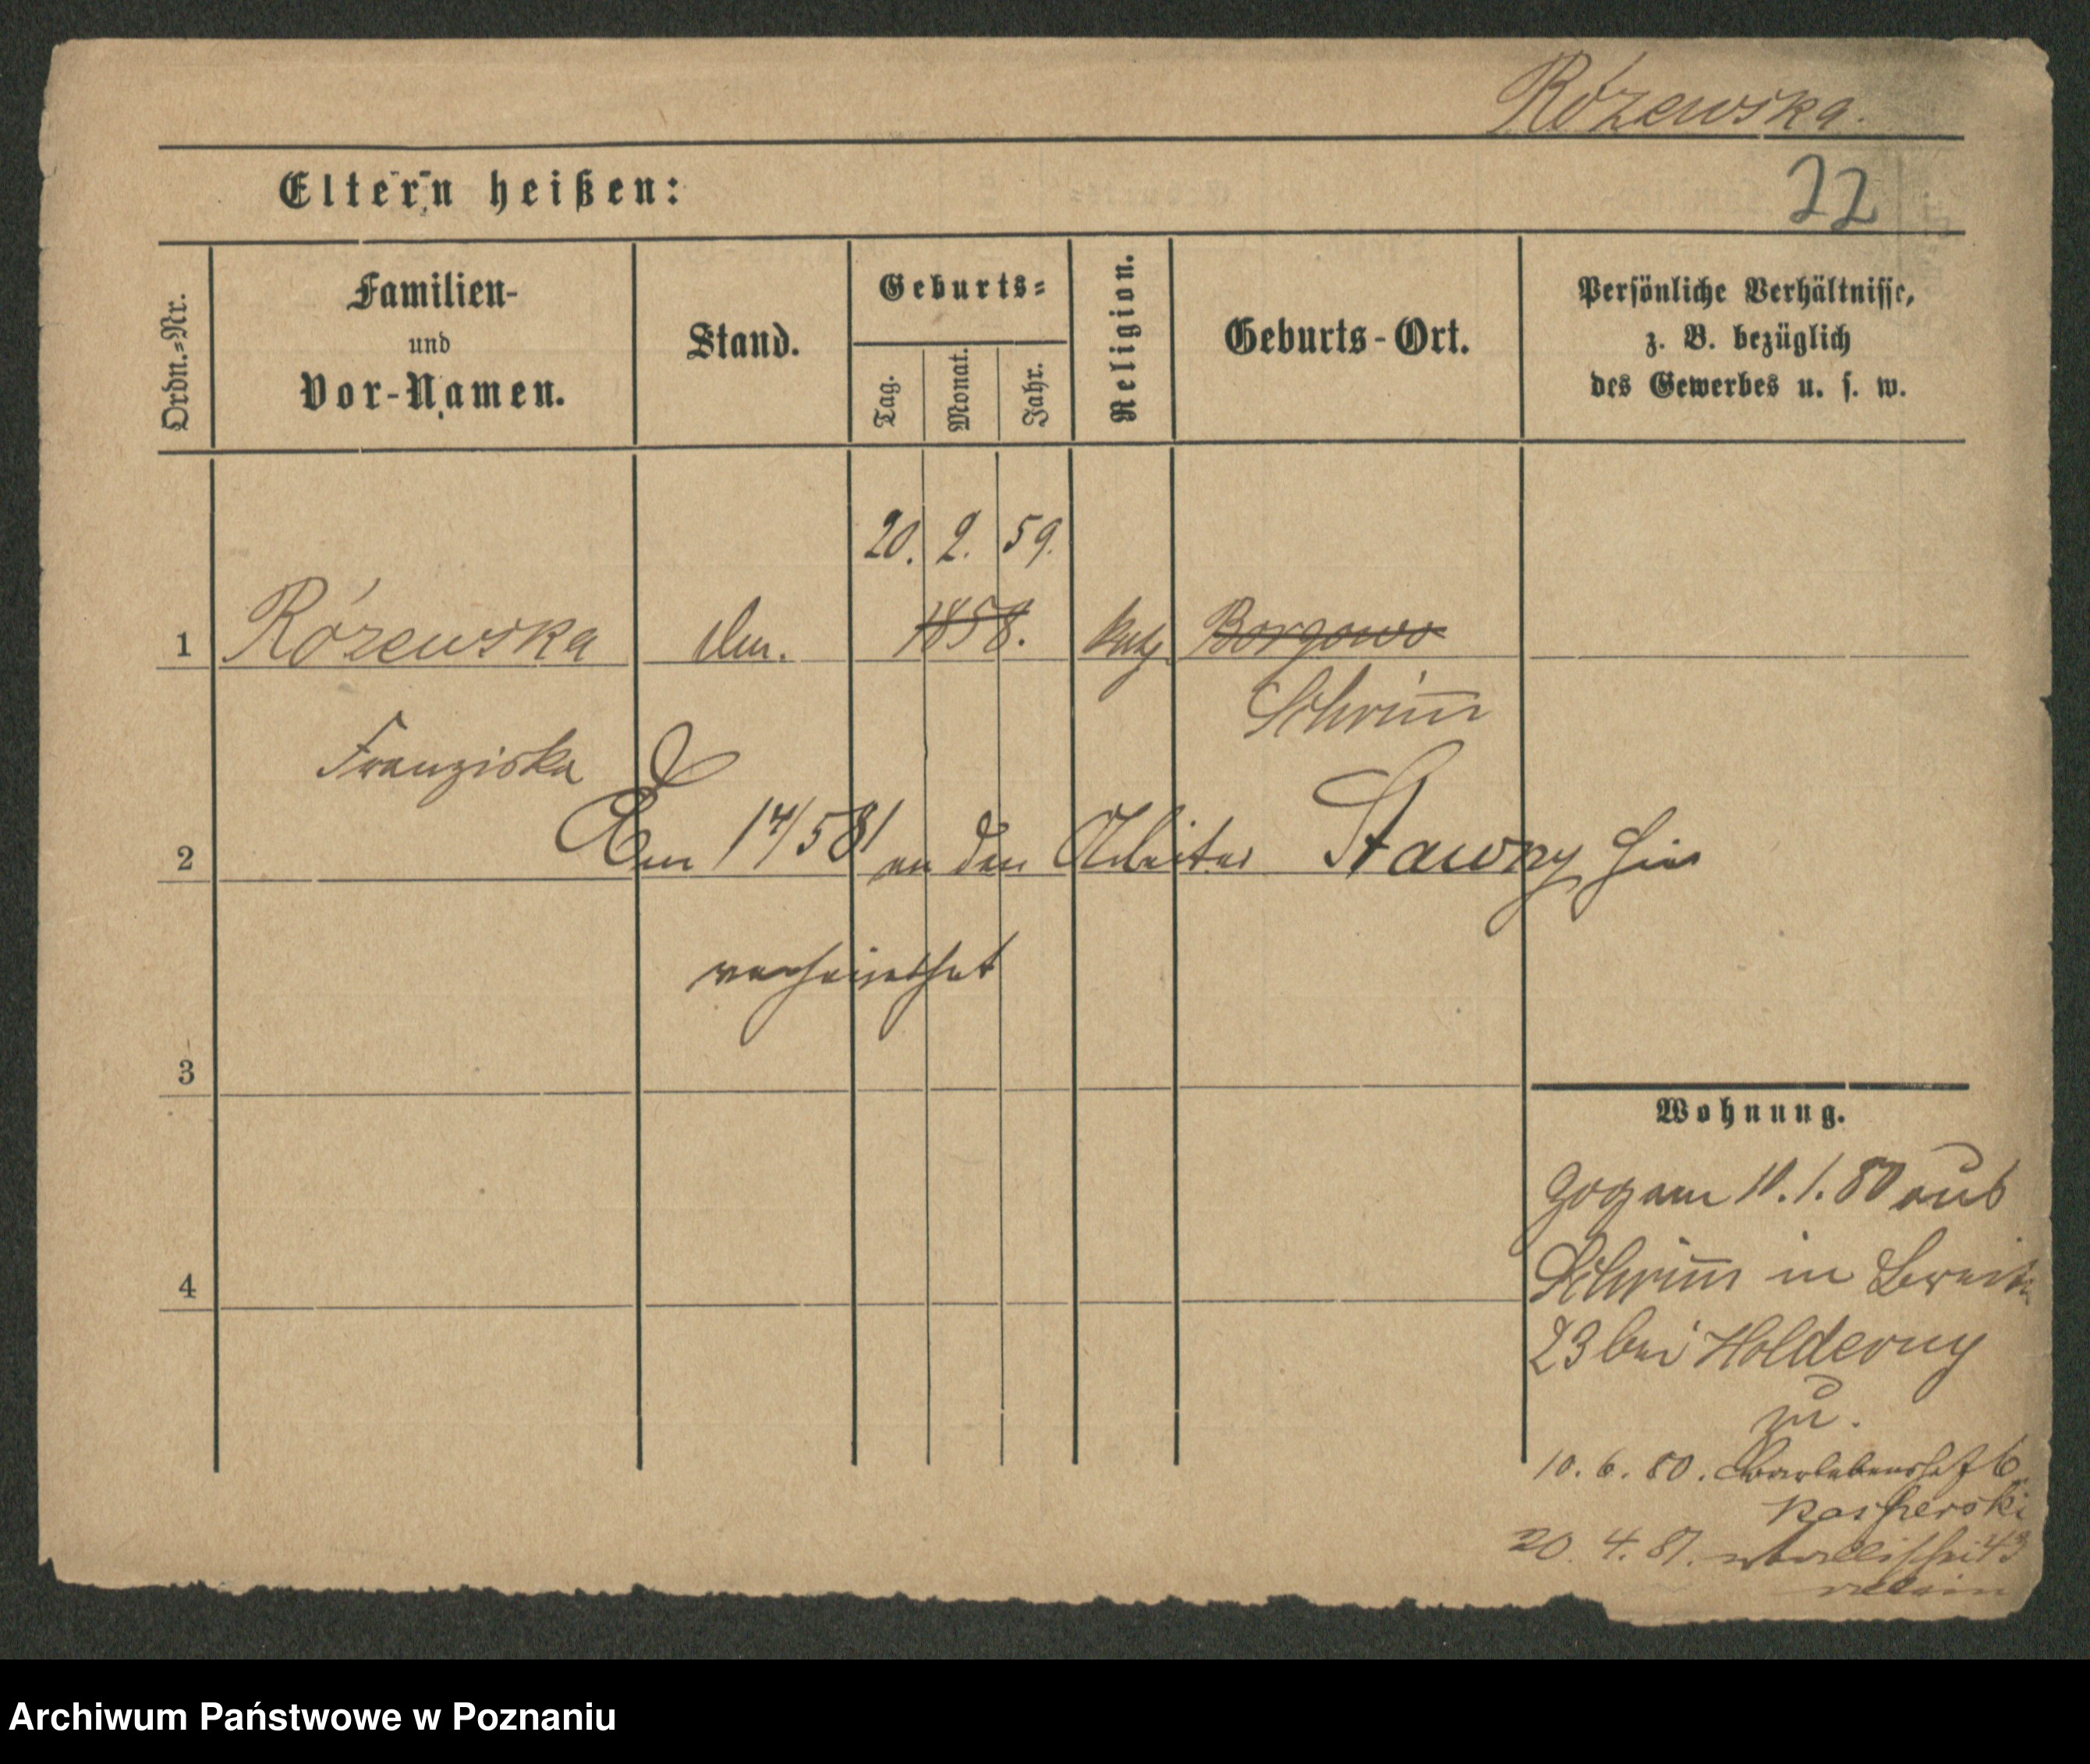 Rózewska.
Eltern heißen:
22
Ordn.=Nr.
Familien-
und
Vor-Namen.
Stand.
Geburts=
Tag.
Monat.
Jahr.
Religion.
Geburts-Ort.
Persönliche Verhältnisse,
z. B. bezüglich
des Gewerbes u. s. w.
20. 2. 59.
1 Rózewska 1858. kath Borgowo
Schrim̅
Franziska
2 Am 14/5 81 an den Arbeiter Stawny hier
verheirathet
3
Wohnung.
Zog am 10.1.80 aus
4
Schrim̅ in Breite
23 bei Holderny
zu.
10. 6. 80. 6
Kasperski
20. 4. 81. Wallischei 43